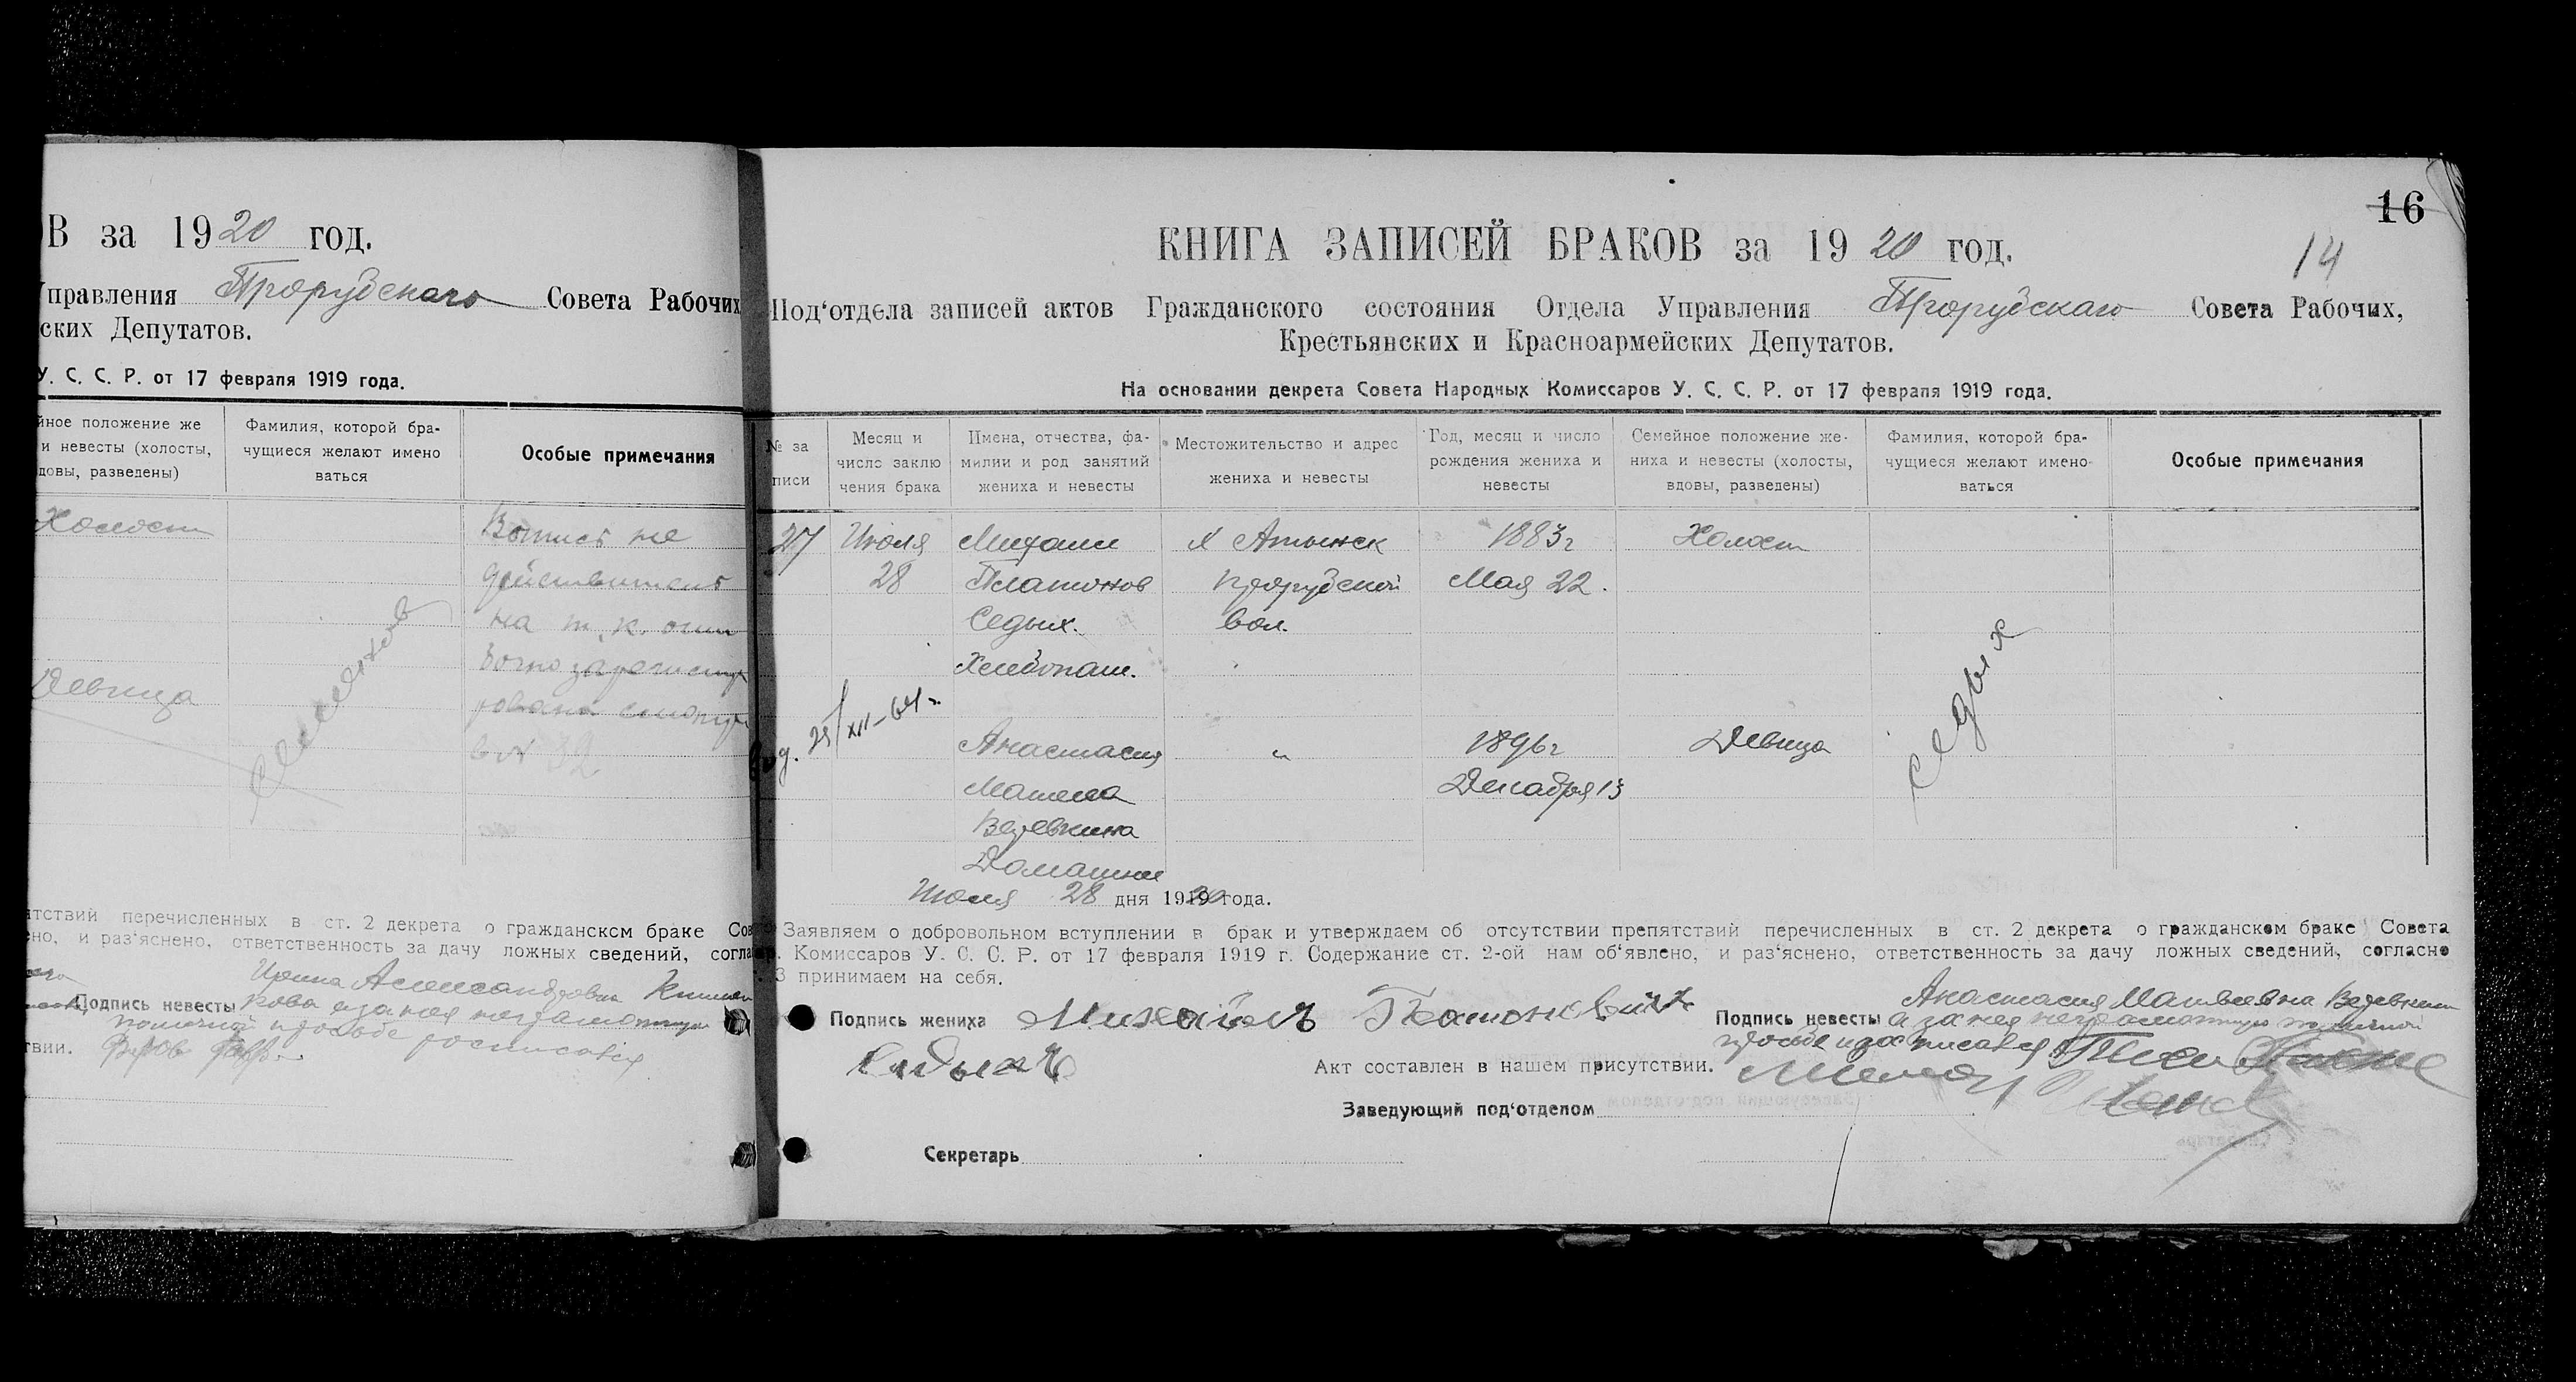 В за 1920 год.
Управления Прорубскаго Совета Рабочих
ских Депутатов.
У. С. С. Р. от 17 февраля 1919 года.
йное положение же
и невесты (холосты,
довы, разведены)
Фамилия, которой бра-
чущиеся желают имено
ваться
Особые примечания
Холост
Девица
Запись не
действитель
на т. к. оши
бочно зарегистр
рована
в № 32
тствий перечисленных в ст. 2 декрета о гражданском браке Сов
но, и раз‘яснено, ответственность за дачу ложных сведений, согла
Подпись невесты
Ирина Александровна
неграмотную
просьбе росписався
твии.
16
14
КНИГА ЗАПИСЕЙ БРАКОВ за 1920 год.
Под‘отдела записей актов Гражданского состояния Отдела Управления Прорубскаго Совета Рабочих,
Крестьянских и Красноармейских Депутатов.
На основании декрета Совета Народных Комиссаров У. С. С. Р. от 17 февраля 1919 года.
№ за
писи
Месяц и
число заклю
чения брака
Имена, отчества, фа-
милии и род занятий
жениха и невесты
Местожительство и адрес
жениха и невесты
Год, месяц и число
рождения жениха и
невесты
Семейное положение же-
ниха и невесты (холосты,
вдовы, разведены)
Фамилия, которой бра-
чущиеся желают имено-
ваться
Особые примечания
27
Июля
28
Михаил
Платонов
Седых.
Хлебопаш.
х Атынск
Прорубской
вол.
1883г
Мая 22.
Холост
Седых
25/XII-64г.
Анастасия
Матвеева
Веревкина
Домашние
"
1896г
Декабря 13
Девица
Июля 28 дня 1920 года.
Заявляем о добровольном вступлении в брак и утверждаем об отсутствии препятствий перечисленных в ст. 2 декрета о гражданском браке Совета
Комиссаров У. С. С. Р. от 17 февраля 1919 г. Содержание ст. 2-ой нам об‘явлено, и раз‘яснено, ответственность за дачу ложных сведений, согласно
3 принимаем на себя.
Подпись жениха Михаилъ Платоновичъ
Седыхъ
Подпись невесты Анастасия Матвеевна Веревкина
а за нея неграмотную по личной
просьбе росписався
Акт составлен в нашем присутствии.
Заведующий под‘отделом
Секретарь